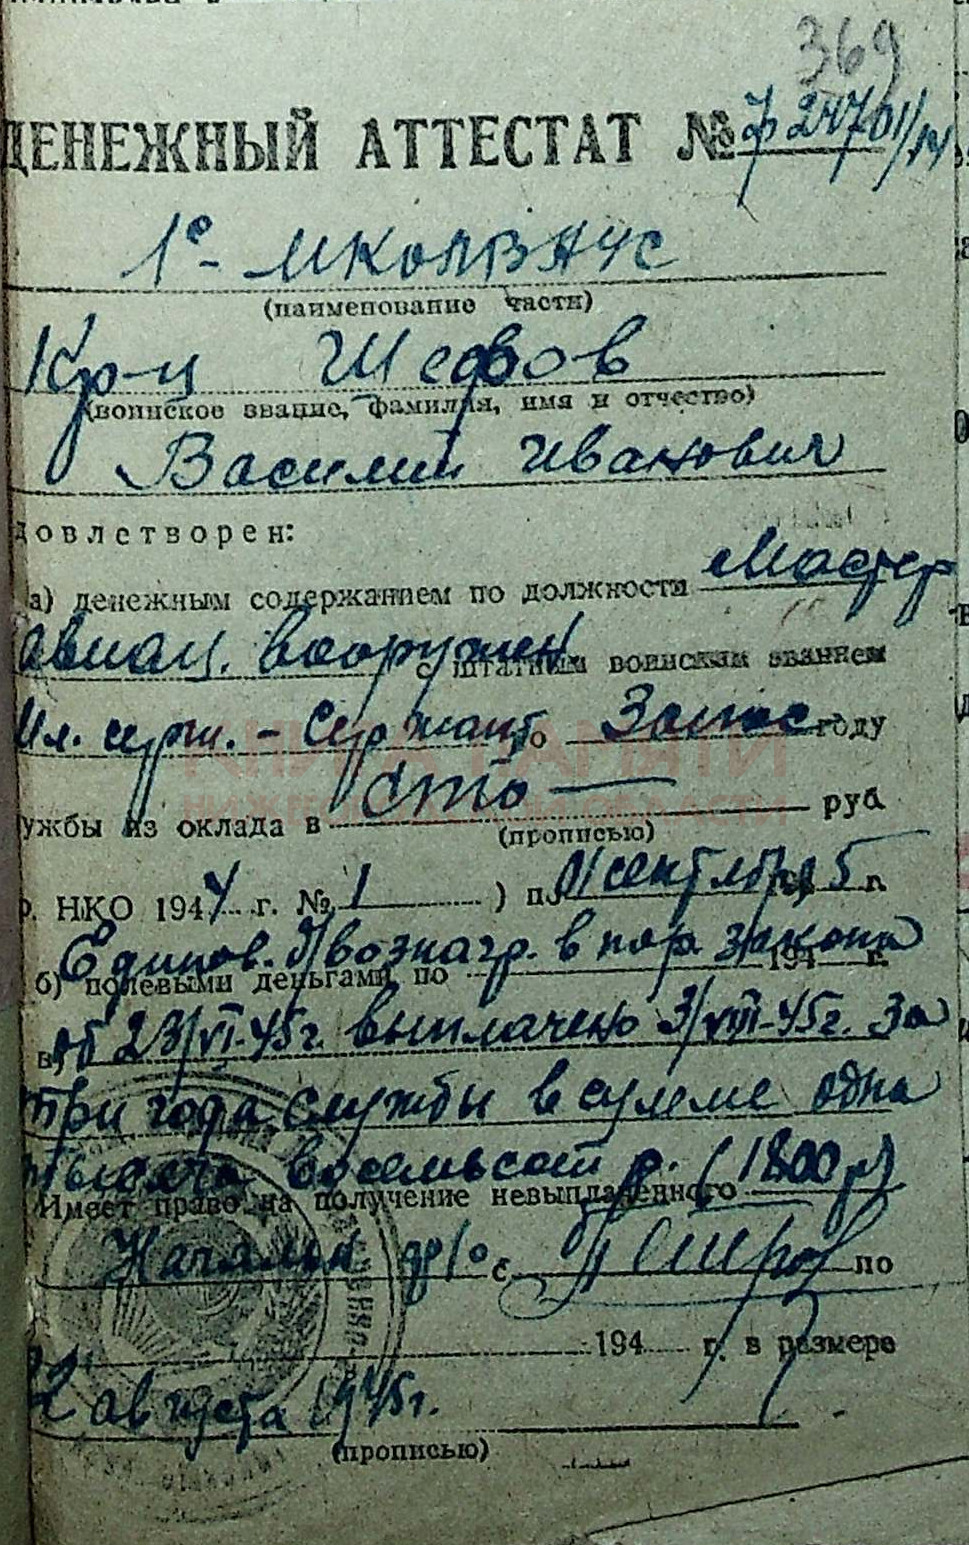 369
ДЕНЕЖНЫЙ АТТЕСТАТ № 724701/14
1º - МКОЛВАУС
(наименование части)
Кр-ц Шефов
(воинское звание, фамилия, имя и отчество)
Василий Иванович
довлетворен:
а) денежным содержанием по должности Мастер
авиац. вооружен с штатным воинским званием
Мл. серж. - Сержант по Запас году
ужбы из оклада в сто — руб
(прописью)
р. НКО 1944 г. № 1 ) по 01 сентября 5 г.
Единов. вознагр. в пор. закона
б) полевыми деньгами по 194 г.
в) об 23/VI-45г. выплачено 3/VIII-45г. За
три года службы в сумме одна
тысяча восемьсот р. (1800 р)
Имеет право на получение невыплаченного
с по
194 г. в размере
2 августа 1945г.
(прописью)
КНИГА ПАМЯТИ
НИЖЕГОРОДСКОЙ ОБЛАСТИ